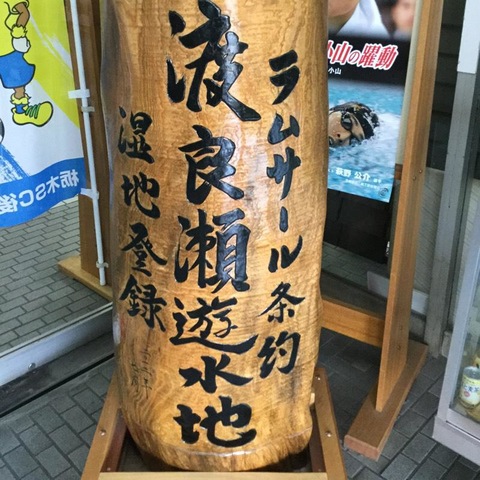 ラムサール条約
渡良瀬遊水地
湿地登録
小山の躍動
小山
萩野 公介
栃木SC